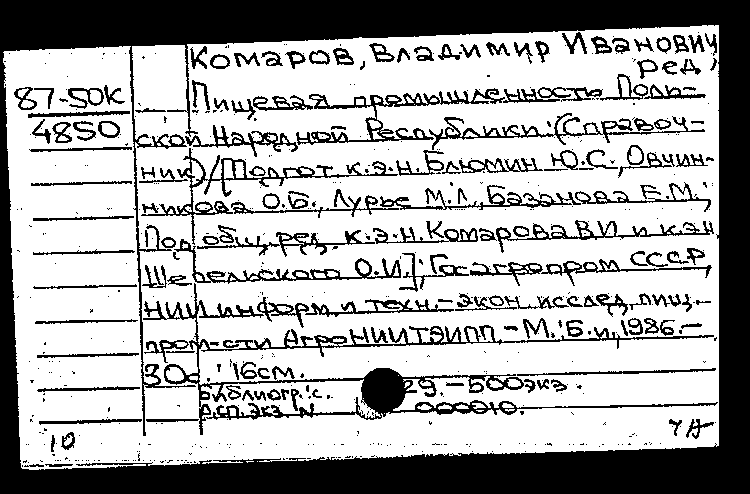 Комаров, Владимир Иванович,
ред.
87-50К Пищевая промышленность Поль-
4850 ской Народной Республики: (Справоч-
ник) / [Подгот. к.э.н. Блюмин Ю.С., Овчин-
никова О.Б., Лурье М.Л., Базанова Е.М.;
Под общ. ред. к.э.н. Комарова В.И. и к.э.н.
Шепельского О.И.]; Госагропром СССР,
НИИ информ. и техн.-экон. исслед. пищ.
пром-сти АгроНИИТЭИПП. - М.: Б.и., 1986. -
30с.; 16см.
Библиогр.: с. 29. - 500экз.
В сп. экз. N 000010.
10